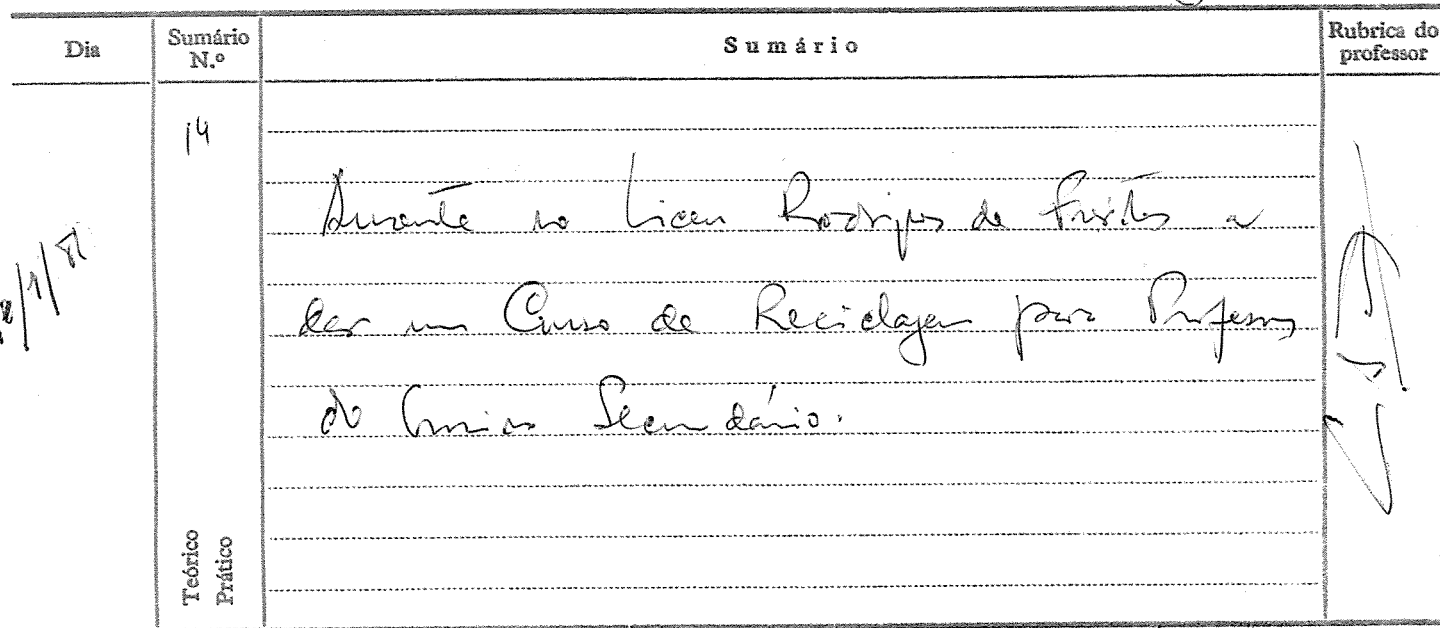 Dia
Sumário N.º
Sumário
Rubrica do professor
14
Ausente no Liceu Rodrigues de Freitas a
dar um Curso de Reciclagem para Professores
do Ensino Secundário.
Teórico
Prático